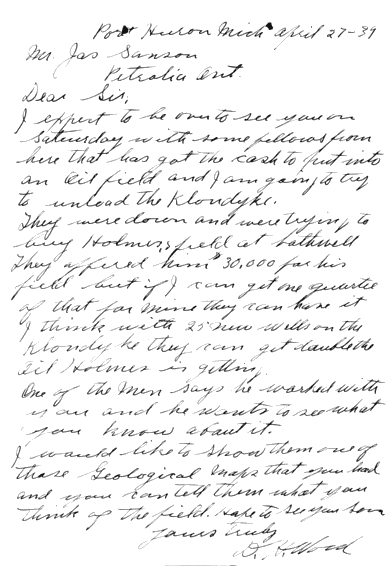 Port Huron Mich april 27-39
Mr. Jas Sanson
Petrolia Ont.
Dear Sir;
I expect to be over to see you on
Saturday with some fellows from
here that has got the cash to put into
an Oil field and I am going to try
to unload the Klondyke.
They were down and were trying to
buy Holmes,s field at Bothwell
They offered him $30,000 for his
field but if I can get one quarter
of that for mine they can have it
I think with 25 new wells on the
Klondyke they can get double the
Oil Holmes is getting.
One of the Men says he worked with
you and he wants to see what
you know about it.
I would like to show them one of
those Geological Maps that you had
and you can tell them what you
think of the field. Hope to see you soon
yours truly
D. K. Wood